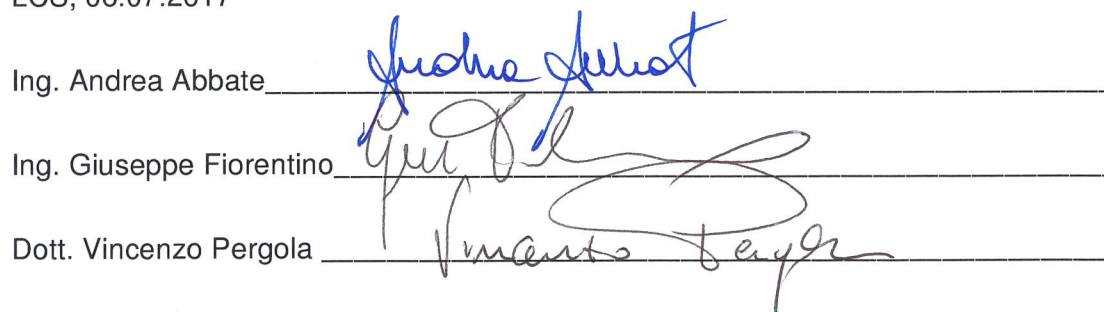 Ing. Andrea Abbate Andrea Abbat
Ing. Giuseppe Fiorentino
Dott. Vincenzo Pergola Vincenzo Pergola